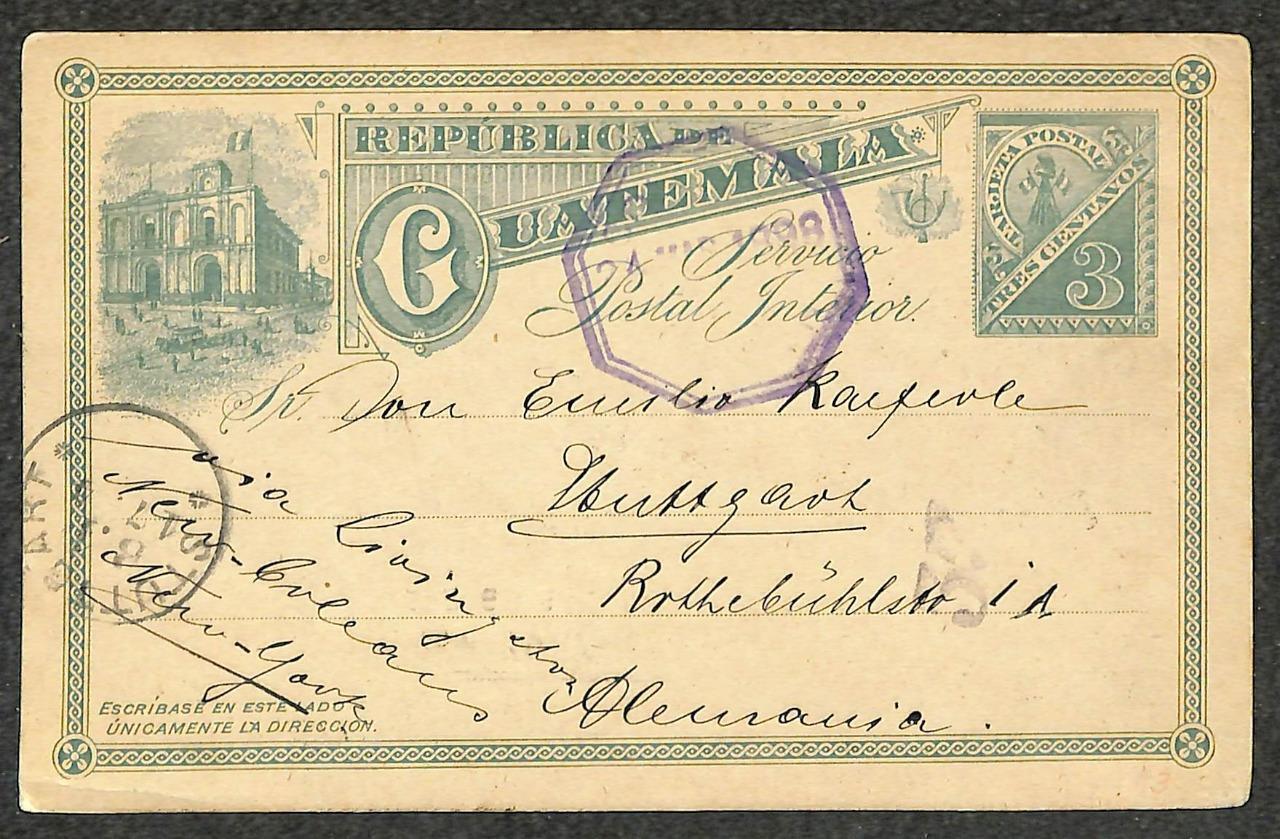 REPÚBLICA DE
GUATEMALA
Servicio
Postal Interior.
TARJETA POSTAL
TRES CENTAVOS
3
1898
Sr. Don Emilio Kaeferle
Stuttgart
Rothebühlstr 1A
Alemania.
via Livingston
New-Orleans
New-York
ESCRÍBASE EN ESTE LADO
ÚNICAMENTE LA DIRECCIÓN.
STUTTGART